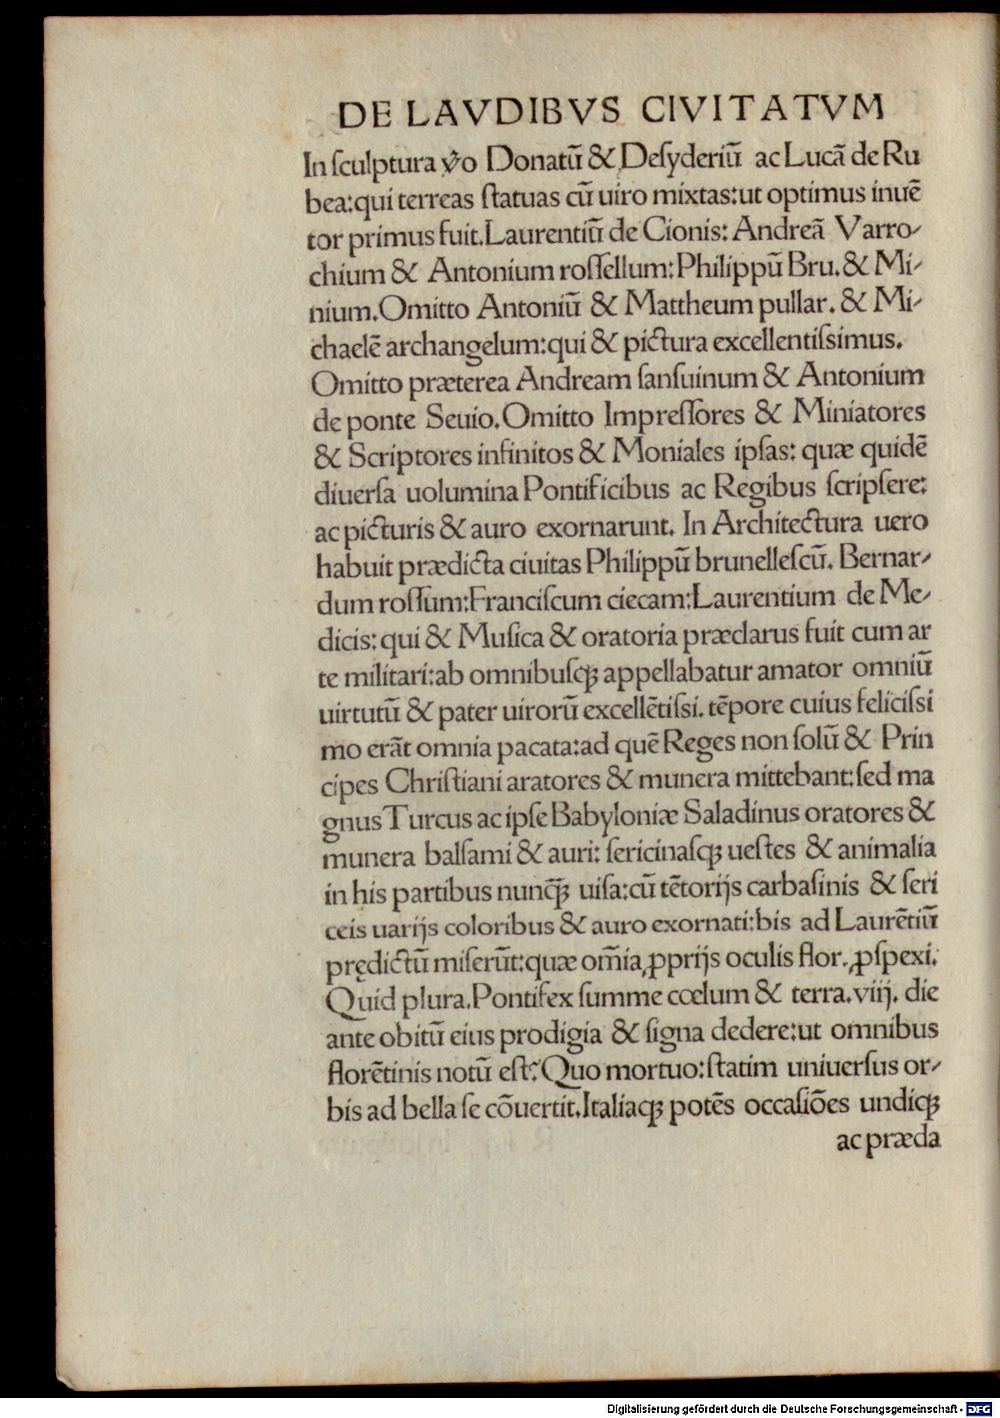 DE LAVDIBVS CIVITATVM
In ſculptura v̾o Donatū & Deſyderiū ac Lucā de Ru
bea:qui terreas ſtatuas cū uiro mixtas:ut optimus inuē
tor primus fuit.Laurentiū de Cionis: Andreā Varro⸗
chium & Antonium roſſellum:Philippū Bru.& Mi⸗
nium.Omitto Antoniū & Mattheum pullar. & Mi⸗
chaelē archangelum:qui & pictura excellentiſsimus.
Omitto præterea Andream ſanſuinum & Antonium
de ponte Seuio.Omitto Impreſſores & Miniatores
& Scriptores infinitos & Moniales ipſas: quæ quidē
diuerſa uolumina Pontificibus ac Regibus ſcripſere:
ac picturis & auro exornarunt. In Architectura uero
habuit prædicta ciuitas Philippū brunelleſcū. Bernar⸗
dum roſſum:Franciſcum ciecam:Laurentium de Me⸗
dicis: qui & Muſica & oratoria præclarus fuit cum ar
te militari:ab omnibuſqꝫ appellabatur amator omniū
uirtutū & pater uirorū excellētiſsi. tēpore cuius feliciſsi
mo erāt omnia pacata:ad quē Reges non ſolū & Prin
cipes Chriſtiani aratores & munera mittebant:ſed ma
gnus Turcus ac ipſe Babyloniæ Saladinus oratores &
munera balſami & auri: ſericinaſqꝫ ueſtes & animalia
in his partibus nunq̄ꝫ uiſa:cū tētorijs carbaſinis & ſeri
ceis uarijs coloribus & auro exornati:bis ad Laurētiū
prędictū miſerūt:quæ om̄ia ꝓprijs oculis flor. ꝓſpexi.
Quid plura.Pontifex ſumme cœlum & terra.viij. die
ante obitū eius prodigia & ſigna dedere:ut omnibus
florētinis notū eſt: Quo mortuo:ſtatim uniuerſus or⸗
bis ad bella ſe cōuertit.Italiaqꝫ potēs occaſiōes undiqꝫ
ac præda
Digitalisierung gefördert durch die Deutsche Forschungsgemeinschaft - DFG